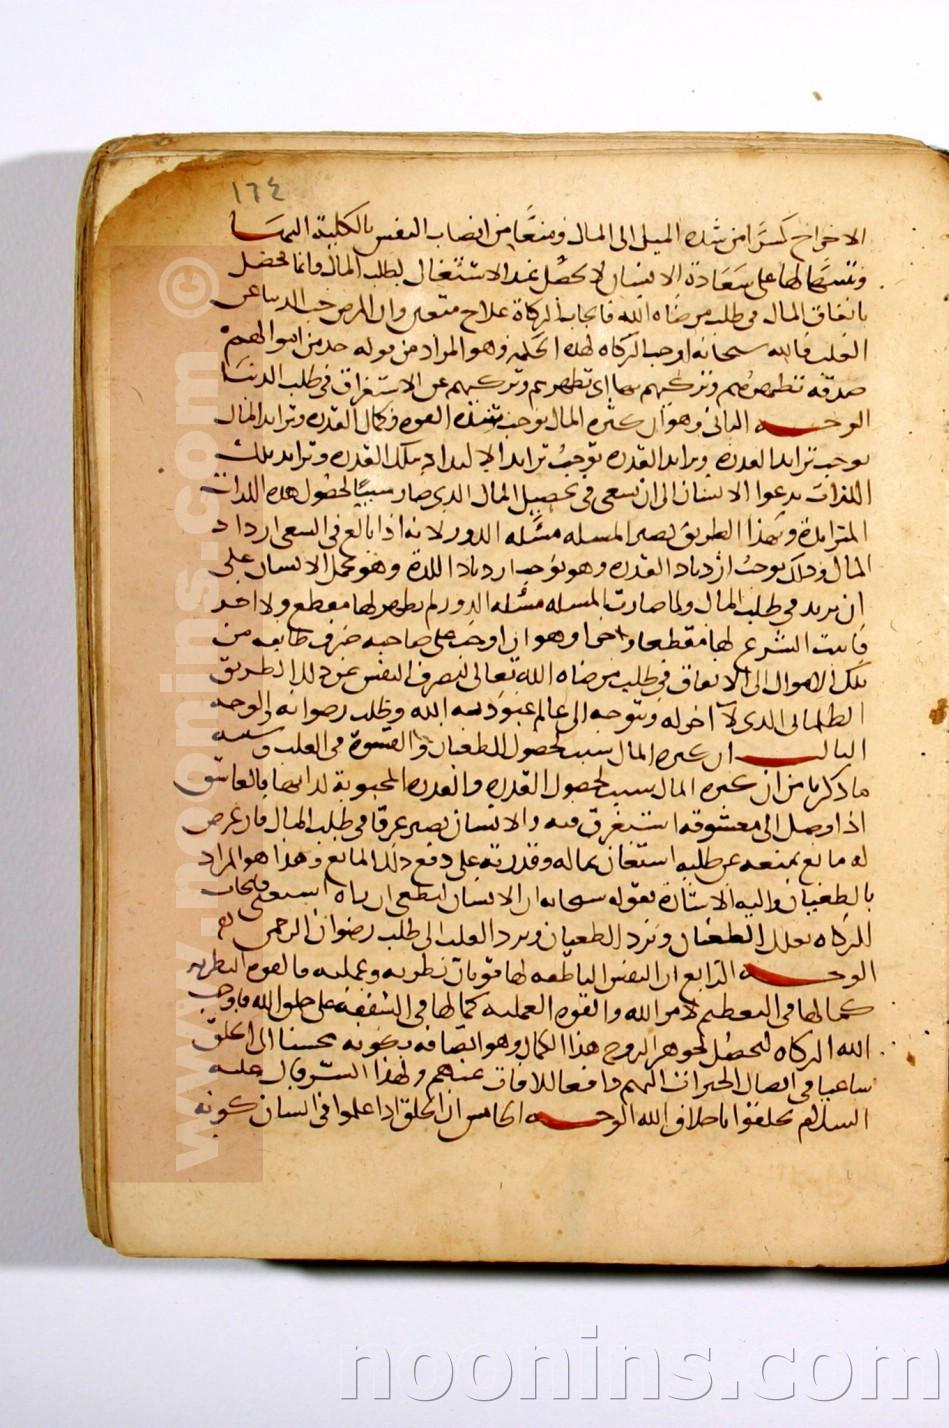 ١٦٤
الاخراج كسرا من شدة الميل الى المال ومنعا من انصاب النفس بالكلية اليها
وتنبيها لها على سعادة الانسان لا يحصل عند الاشتغال بطلب المال وانما تحصل
بانفاق المال في طلب مرضاه الله فايجاب الزكاة علاج متعين وان المرض حب الدنيا عن
القلب فالله سبحانه اوجب الزكاه لهذه الحكمه وهو المراد من قوله خذ من اموالهم
صدقه تطهرهم وتزكيهم بها اى تطهرهم وتزكيهم عن الاستغراق في طلب الدنيا
الوجـــه الثانى وهو ان كثره المال توجب شدة القوه وكمال القدره وتزايد المال
يوجب تزايد القدره وتزايد القدره يوجب تزايد الالتداد بتلك القدره وتزايد تلك
اللذات يدعوا الانسان الى ان يسعى في تحصيل المال الدى صار سببا لحصول هده اللدات
المتزايدة وبهذا الطريق يصير المسله مسئله الدور لانه اذا بالغ في السعى ازداد
المال وذلك يوجب ازدياد القدره وهو يوجب ازدياد اللذة وهو يحمل الانسان على
ان يزيد في طلب المال ولما صارت المسله مسئله الدور لم يظهر لها مقطع ولا اخر
فاثبت الشرع لها مقطعا واخرا وهو ان اوجب على صاحبه صرف طايفه من
تلك الاموال الى الانفاق في طلب مرضاه الله تعالى ليصرف النفس عن ذلك الطريق
الظلمانى الدى لا اخر له ويتوجه الى عالم عبوديه الله وطلب رضوانه الوجه
الثالـــث ان كثره المال سبب لحصول الطغيان والقسوة في القلب وسببه
ما ذكرنا من ان كثره المال سبب لحصول القدره والقدره المحبوبة لداتها فالعاشق
اذا وصل الى معشوقه استغرق فيه والانسان يصير غرقا في طلب المال فان عرض
له مانع يمنعه عن طلبه استعان بماله وقدرته على دفع ذلك المانع وهذا هو المراد
بالطغيان واليه الاشارة بقوله سبحانه ان الانسان ليطغى ان راه استغنى فايجاب
الزكاه يقلل الطغيان ويرد القلب الى طلب رضوان الرحمن
الوجـــه الرابع ان النفس الناطقه لها قوتان نظريه وعمليه فالقوه النظريه
كمالها في التعظيم لامر الله والقوه العمليه كمالها في الشفقه على خلق الله فاوجب
الله الزكاه لتحصل لجوهر الروح هذا الكمال وهو اتصافه بكونه محسنا الى الخلق
ساعيا في ايصال الخيرات اليهم دافعا للافات عنهم ولهذا السر قال عليه
السلام تخلقوا باخلاق الله الوجـــه الخامس ان الخلق اذا علموا في انسان كونه
www.noonins.com ©
noonins.com